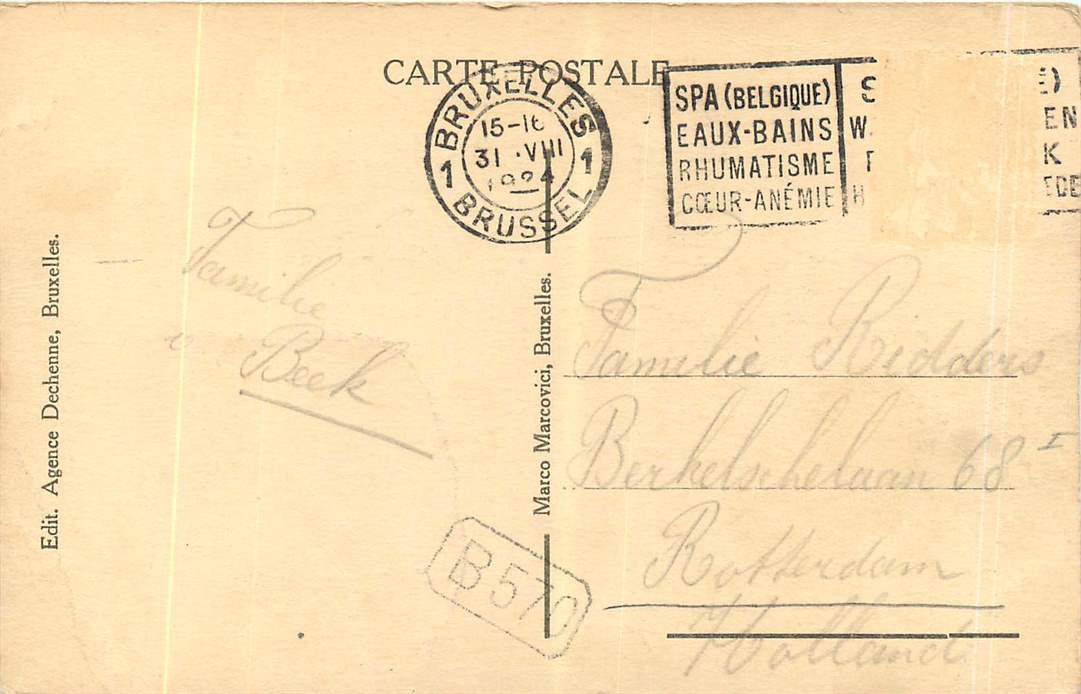 CARTE POSTALE
BRUXELLES
15-16
31 · VIII
1924
1 1
BRUSSEL
SPA (BELGIQUE)
EAUX-BAINS
RHUMATISME
CŒUR-ANÉMIE
Familie
v
Beek
Edit. Agence Dechenne, Bruxelles.
Marco Marcovici, Bruxelles.
B 570
Familie Ridders
Berkelschelaan 68 I
Rotterdam
Holland